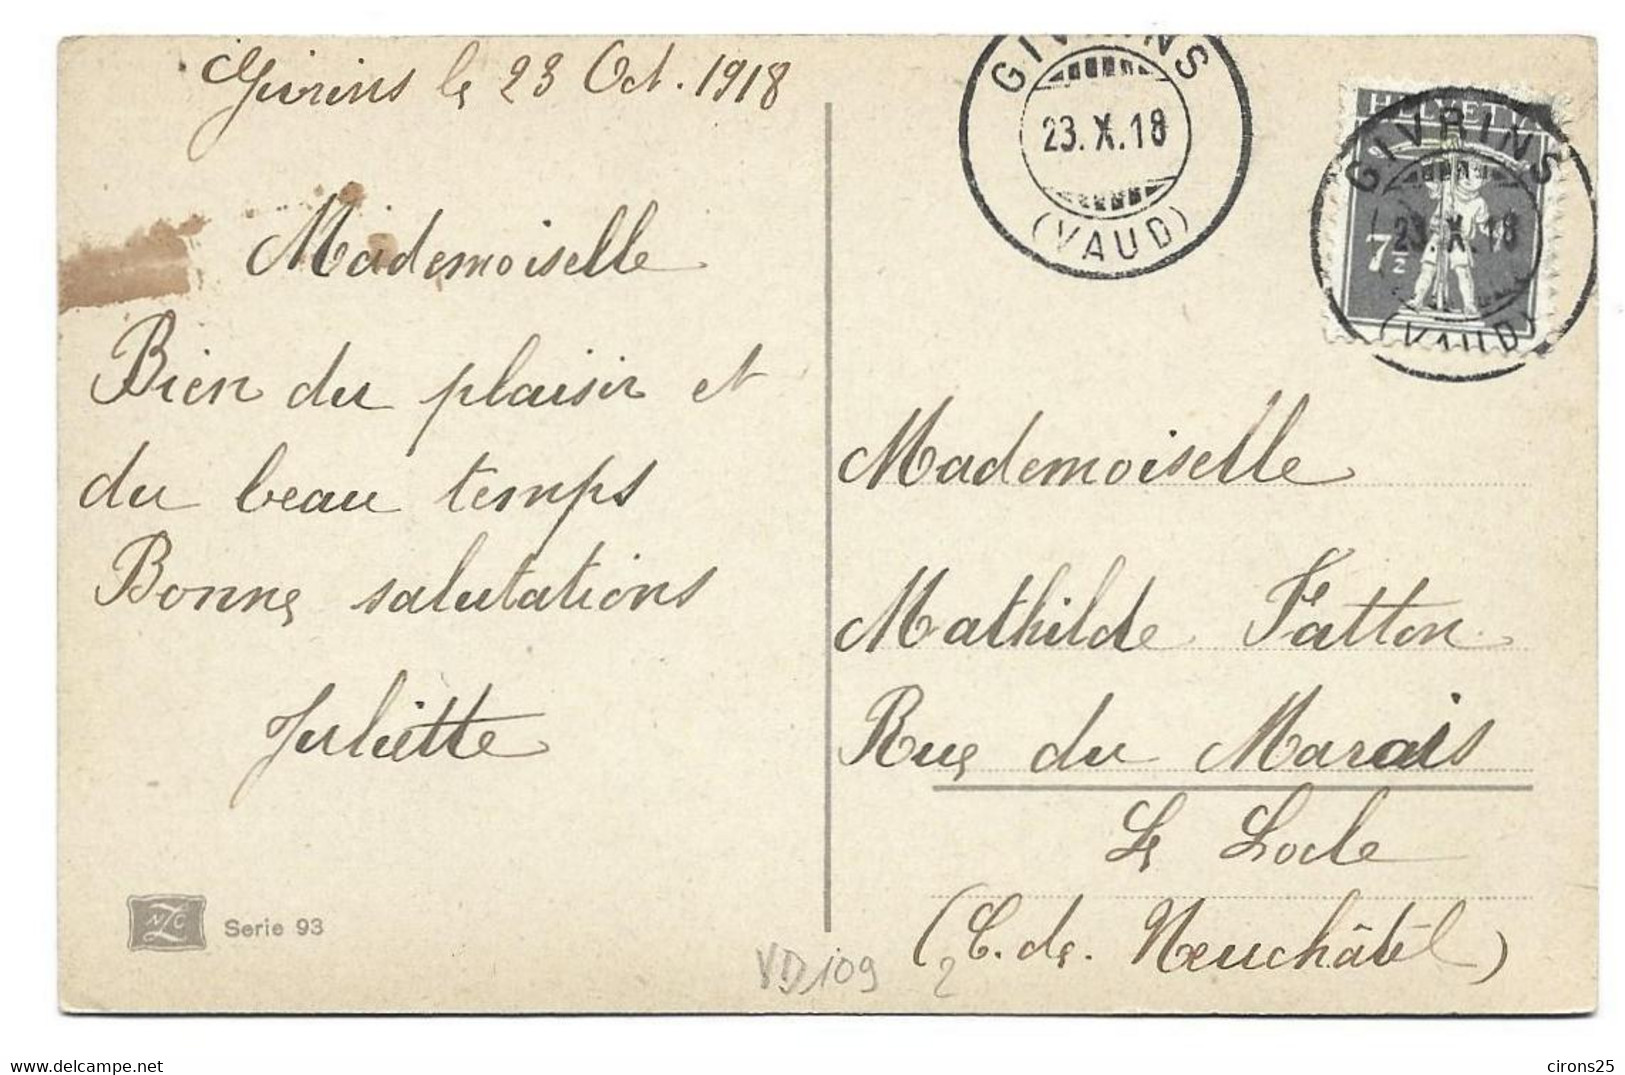 Givrins le 23 Oct. 1918
Mademoiselle
Bien du plaisir et
du beau temps
Bonne salutations
Juliette
NZC
Serie 93
VD 109
GIVRINS
23.X.18
(VAUD)
HELVETIA
7½
GIVRINS
23.X.18
(VAUD)
Mademoiselle
Mathilde Fatton
Rue du Marais
Le Locle
(C. de. Neuchâtel)
2
www.delcampe.net
cirons25